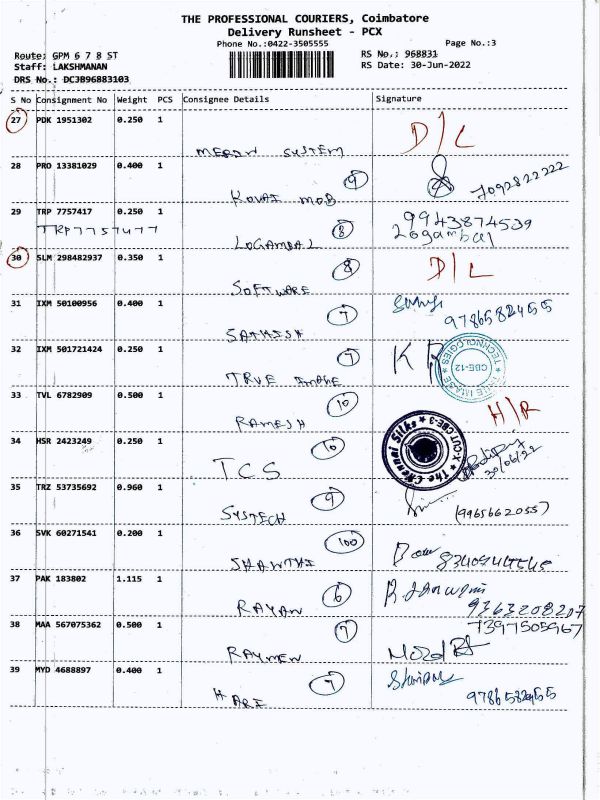 THE PROFESSIONAL COURIERS, Coimbatore
Delivery Runsheet - PCX
Phone No.:0422-3505555 Page No.:3
Route: GPM 6 7 8 ST RS No.: 968831
Staff: LAKSHMANAN RS Date: 30-Jun-2022
DRS No.: DCJB96883103
S No Consignment No Weight PCS Consignee Details Signature
27 PDK 1951302 0.250 1 D/L
SYSTEM
28 PRO 13381029 0.400 1
KOVAI MOB 9 7092822222
29 TRP 7757417 0.250 1 9943874539
TRP7757477 LOGAMBAL 8 Logambal
30 SLM 298482937 0.350 1 D/L
SOFTWARE 8
31 IXM 50100956 0.400 1
SATHISH 7 9786582455
32 IXM 501721424 0.250 1
TRUE IMAGE 7
TECHNOLOGIES
CBE-12
33 TVL 6782909 0.500 1 H/R
RAMESH 10
34 HSR 2423249 0.250 1
TCS 10
The Chennai Silks
30/06/22
35 TRZ 53735692 0.960 1
SYSTECH 9 (9965662055)
36 SVK 60271541 0.200 1
SHANTHI 100
37 PAK 183802 1.115 1
RAYAN 6 9363208207
38 MAA 567075362 0.500 1 7397505967
RAYMEN 7
39 MYD 4688897 0.400 1
HARI 7 9786582455